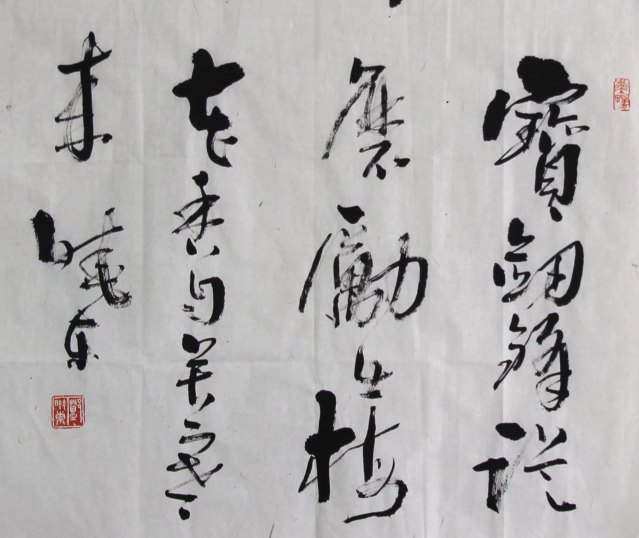 寶劍鋒從
磨勵出梅
花香自苦寒
來 曉東